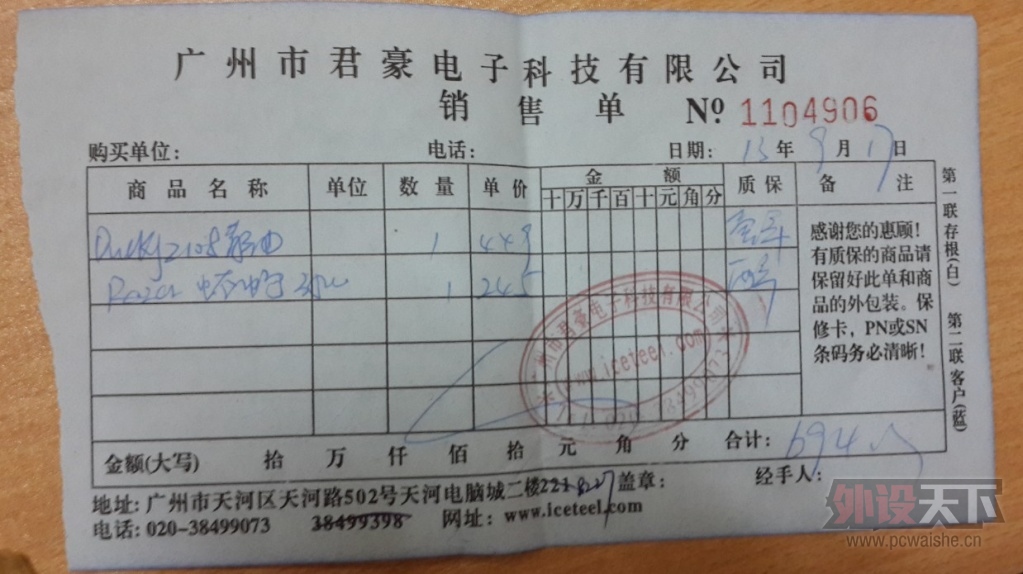 广州市君豪电子科技有限公司
销售单 Nº 1104906
购买单位: 电话: 日期: 13年9月17日
商品名称 单位 数量 单价 金额 质保 备注
十万千百十元角分
Ducky2108 1 449
Razer 1 245
感谢您的惠顾!
有质保的商品请
保留好此单和商
品的外包装。保
修卡，PN或SN
条码务必清晰!
第一联存根(白) 第二联客户(蓝)
广州市君豪电子科技有限公司
www.iceteel.com
金额(大写) 拾 万 仟 佰 拾 元 角 分 合计: 694
地址: 广州市天河区天河路502号天河电脑城二楼221 盖章: 经手人:
电话: 020-38499073 38499398 网址: www.iceteel.com
外设天下
www.pcwaishe.cn